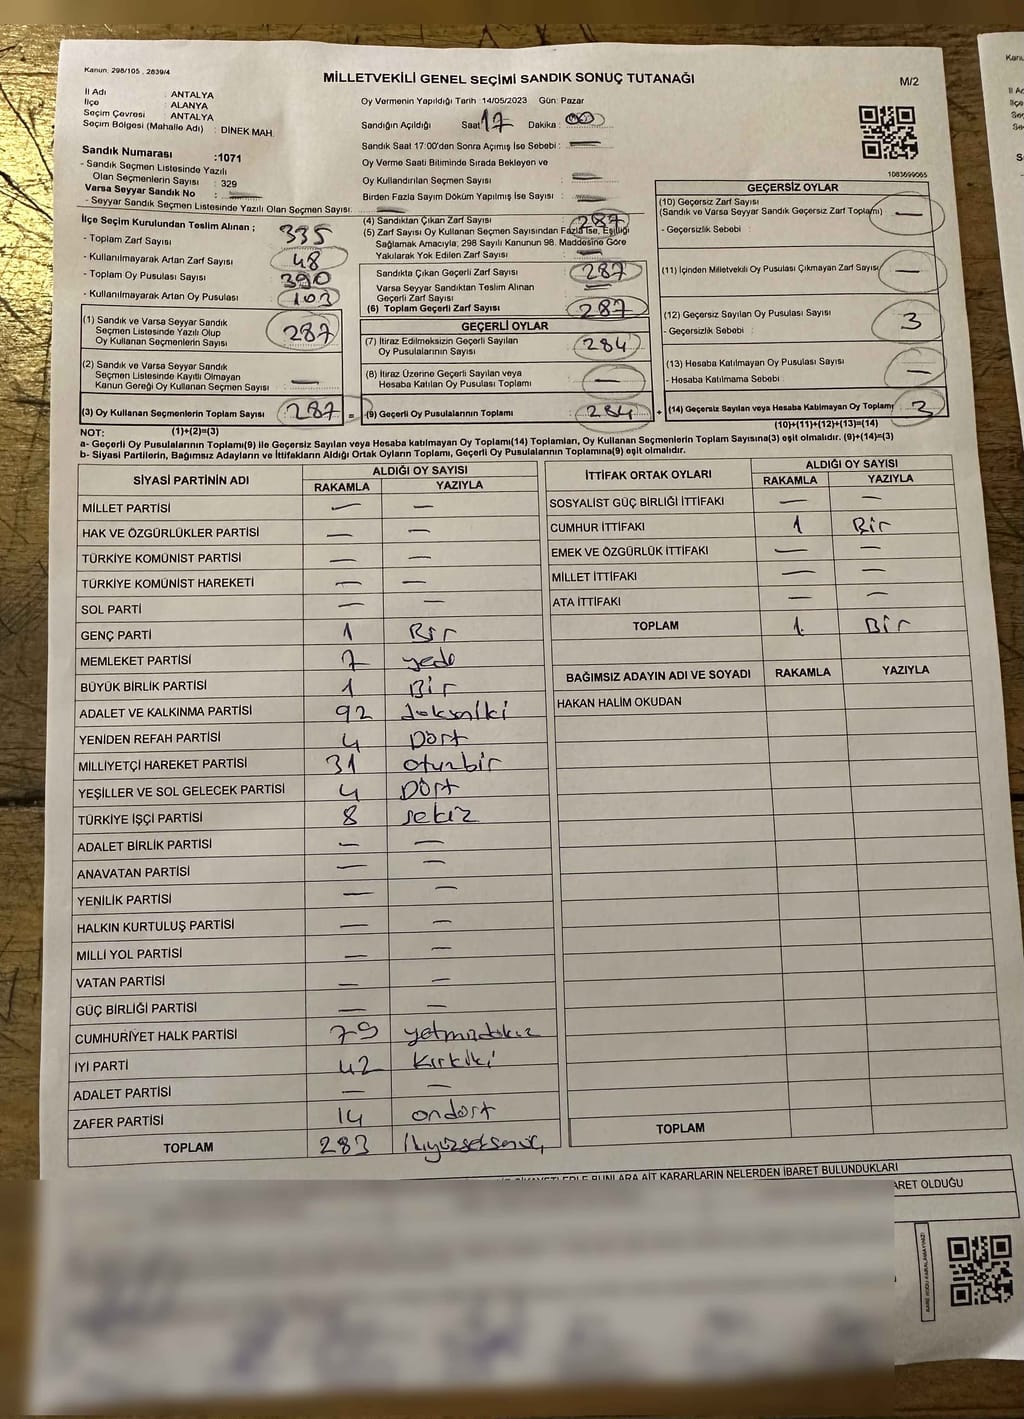 Kanun: 298/105 , 2839/4
MİLLETVEKİLİ GENEL SEÇİMİ SANDIK SONUÇ TUTANAĞI
M/2
İl Adı : ANTALYA
İlçe : ALANYA
Seçim Çevresi : ANTALYA
Seçim Bölgesi (Mahalle Adı) : DİNEK MAH.
Oy Vermenin Yapıldığı Tarih 14/05/2023 Gün: Pazar
Sandığın Açıldığı Saat 17 Dakika : 00
Sandık Saat 17:00'den Sonra Açımış İse Sebebi : —
Oy Verme Saati Bitiminde Sırada Bekleyen ve
Oy Kullandırılan Seçmen Sayısı : —
Birden Fazla Sayım Döküm Yapılmış İse Sayısı : —
Sandık Numarası :1071
- Sandık Seçmen Listesinde Yazılı
Olan Seçmenlerin Sayısı : 329
Varsa Seyyar Sandık No : —
- Seyyar Sandık Seçmen Listesinde Yazılı Olan Seçmen Sayısı: —
1083699065
İlçe Seçim Kurulundan Teslim Alınan ;
- Toplam Zarf Sayısı : 335
- Kullanılmayarak Artan Zarf Sayısı : 48
- Toplam Oy Pusulası Sayısı : 390
- Kullanılmayarak Artan Oy Pusulası : 103
(1) Sandık ve Varsa Seyyar Sandık
Seçmen Listesinde Yazılı Olup
Oy Kullanan Seçmenlerin Sayısı : 287
(2) Sandık ve Varsa Seyyar Sandık
Seçmen Listesinde Kayıtlı Olmayan
Kanun Gereği Oy Kullanan Seçmen Sayısı : —
(3) Oy Kullanan Seçmenlerin Toplam Sayısı : 287 =
(4) Sandıktan Çıkan Zarf Sayısı : 287
(5) Zarf Sayısı Oy Kullanan Seçmen Sayısından Fazla İse, Eşitliği
Sağlamak Amacıyla; 298 Sayılı Kanunun 98. Maddesine Göre
Yakılarak Yok Edilen Zarf Sayısı : —
Sandıkta Çıkan Geçerli Zarf Sayısı : 287
Varsa Seyyar Sandıktan Teslim Alınan
Geçerli Zarf Sayısı : —
(6) Toplam Geçerli Zarf Sayısı : 287
GEÇERLİ OYLAR
(7) İtiraz Edilmeksizin Geçerli Sayılan
Oy Pusulalarının Sayısı : 284
(8) İtiraz Üzerine Geçerli Sayılan veya
Hesaba Katılan Oy Pusulası Toplamı : —
(9) Geçerli Oy Pusulalarının Toplamı : 284 +
GEÇERSİZ OYLAR
(10) Geçersiz Zarf Sayısı
(Sandık ve Varsa Seyyar Sandık Geçersiz Zarf Toplamı) : —
- Geçersizlik Sebebi :
(11) İçinden Milletvekili Oy Pusulası Çıkmayan Zarf Sayısı : —
(12) Geçersiz Sayılan Oy Pusulası Sayısı : 3
- Geçersizlik Sebebi :
(13) Hesaba Katılmayan Oy Pusulası Sayısı : —
- Hesaba Katılmama Sebebi :
(14) Geçersiz Sayılan veya Hesaba Katılmayan Oy Toplamı : 3
NOT: (1)+(2)=(3)
(10)+(11)+(12)+(13)=(14)
a- Geçerli Oy Pusulalarının Toplamı(9) ile Geçersiz Sayılan veya Hesaba katılmayan Oy Toplamı(14) Toplamları, Oy Kullanan Seçmenlerin Toplam Sayısına(3) eşit olmalıdır. (9)+(14)=(3)
b- Siyasi Partilerin, Bağımsız Adayların ve İttifakların Aldığı Ortak Oyların Toplamı, Geçerli Oy Pusulalarının Toplamına(9) eşit olmalıdır.
SİYASİ PARTİNİN ADI ALDIĞI OY SAYISI
RAKAMLA YAZIYLA
MİLLET PARTİSİ — —
HAK VE ÖZGÜRLÜKLER PARTİSİ — —
TÜRKİYE KOMÜNİST PARTİSİ — —
TÜRKİYE KOMÜNİST HAREKETİ — —
SOL PARTİ — —
GENÇ PARTİ 1 Bir
MEMLEKET PARTİSİ 7 yedi
BÜYÜK BİRLİK PARTİSİ 1 Bir
ADALET VE KALKINMA PARTİSİ 92 doksaniki
YENİDEN REFAH PARTİSİ 4 Dört
MİLLİYETÇİ HAREKET PARTİSİ 31 oturbir
YEŞİLLER VE SOL GELECEK PARTİSİ 4 Dört
TÜRKİYE İŞÇİ PARTİSİ 8 sekiz
ADALET BİRLİK PARTİSİ — —
ANAVATAN PARTİSİ — —
YENİLİK PARTİSİ — —
HALKIN KURTULUŞ PARTİSİ — —
MİLLİ YOL PARTİSİ — —
VATAN PARTİSİ — —
GÜÇ BİRLİĞİ PARTİSİ — —
CUMHURİYET HALK PARTİSİ 79
İYİ PARTİ 42 Kırkiki
ADALET PARTİSİ — —
ZAFER PARTİSİ 14 ondört
TOPLAM 283
İTTİFAK ORTAK OYLARI ALDIĞI OY SAYISI
RAKAMLA YAZIYLA
SOSYALİST GÜÇ BİRLİĞİ İTTİFAKI — —
CUMHUR İTTİFAKI 1 Bir
EMEK VE ÖZGÜRLÜK İTTİFAKI — —
MİLLET İTTİFAKI — —
ATA İTTİFAKI — —
TOPLAM 1 Bir
BAĞIMSIZ ADAYIN ADI VE SOYADI RAKAMLA YAZIYLA
HAKAN HALİM OKUDAN
TOPLAM
BUNLARA AİT KARARLARIN NELERDEN İBARET BULUNDUKLARI
OLDUĞU